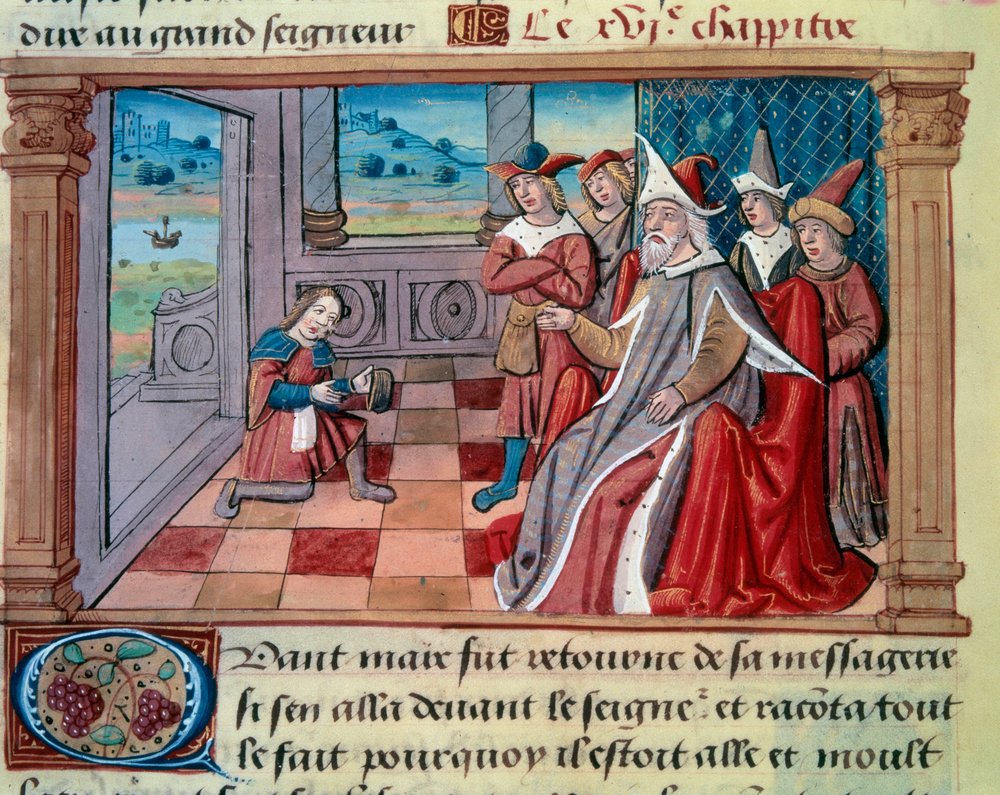 dire au grand seigneur
Le xvi.e chappitre
Quant marc fut retourne de sa messagerie
si sen alla devant le seigne.r et racōta tout
le fait pourquoy il estoit alle et moult